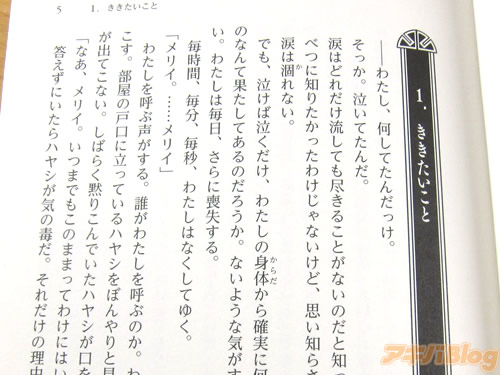 5　1．ききたいこと
1．ききたいこと
――わたし、何してたんだっけ。
そっか。泣いてたんだ。
涙はどれだけ流しても尽きることがないのだと知っ
べつに知りたかったわけじゃないけど、思い知らさ
涙は涸れない。
でも、泣けば泣くだけ、わたしの身体から確実に何
のなんて果たしてあるのだろうか。ないような気がす
い。わたしは毎日、さらに喪失する。
毎時間、毎分、毎秒、わたしはなくしてゆく。
「メリイ。……メリイ」
わたしを呼ぶ声がする。誰がわたしを呼ぶのか。わ
こす。部屋の戸口に立っているハヤシをぼんやりと見
が出てこない。しばらく黙りこんでいたハヤシが口を
「なあ、メリイ。いつまでもこのままってわけにはい
答えずにいたらハヤシが気の毒だ。それだけの理由
アキバBlog